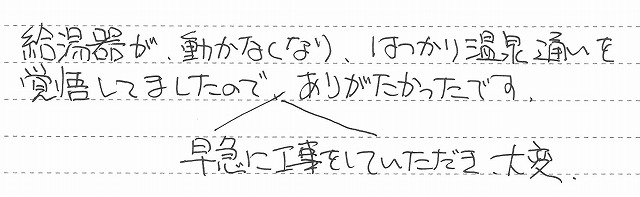 給湯器が、動かなくなり、はっかり温泉通いを
覚悟してましたので、ありがたかったです。
早急に工事をしていただき、大変、